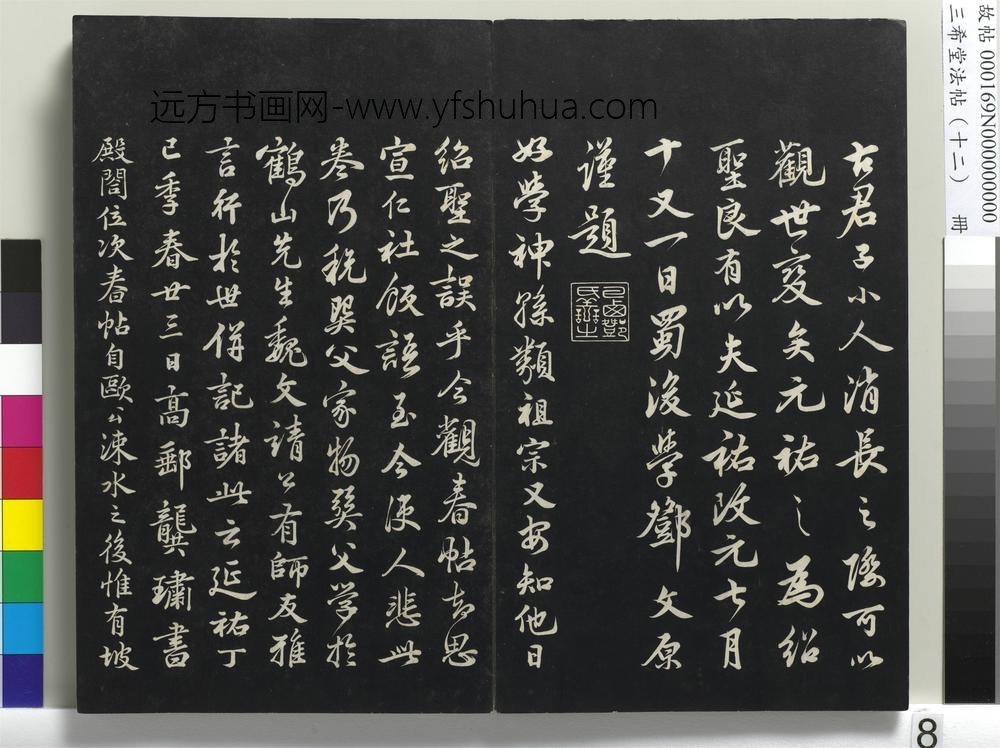 远方书画网-www.yfshuhua.com
故帖 000169N000000000
三希堂法帖（十二） 冊
古君子小人消長之際可以
觀世變矣元祐之為紹
聖良有以夫延祐改元七月
十又一日蜀後學鄧文原
謹題
好學神孫類祖宗又安知他日
紹聖之誤乎今觀春帖却思
宣仁社飯語至今使人悲此
卷乃税巽父家物巽父學於
鶴山先生魏文靖公有師友雅
言行於世併記諸此云延祐丁
巳季春廿三日高郵龔璛書
殿閤位次春帖自歐公涑水之後惟有坡
8